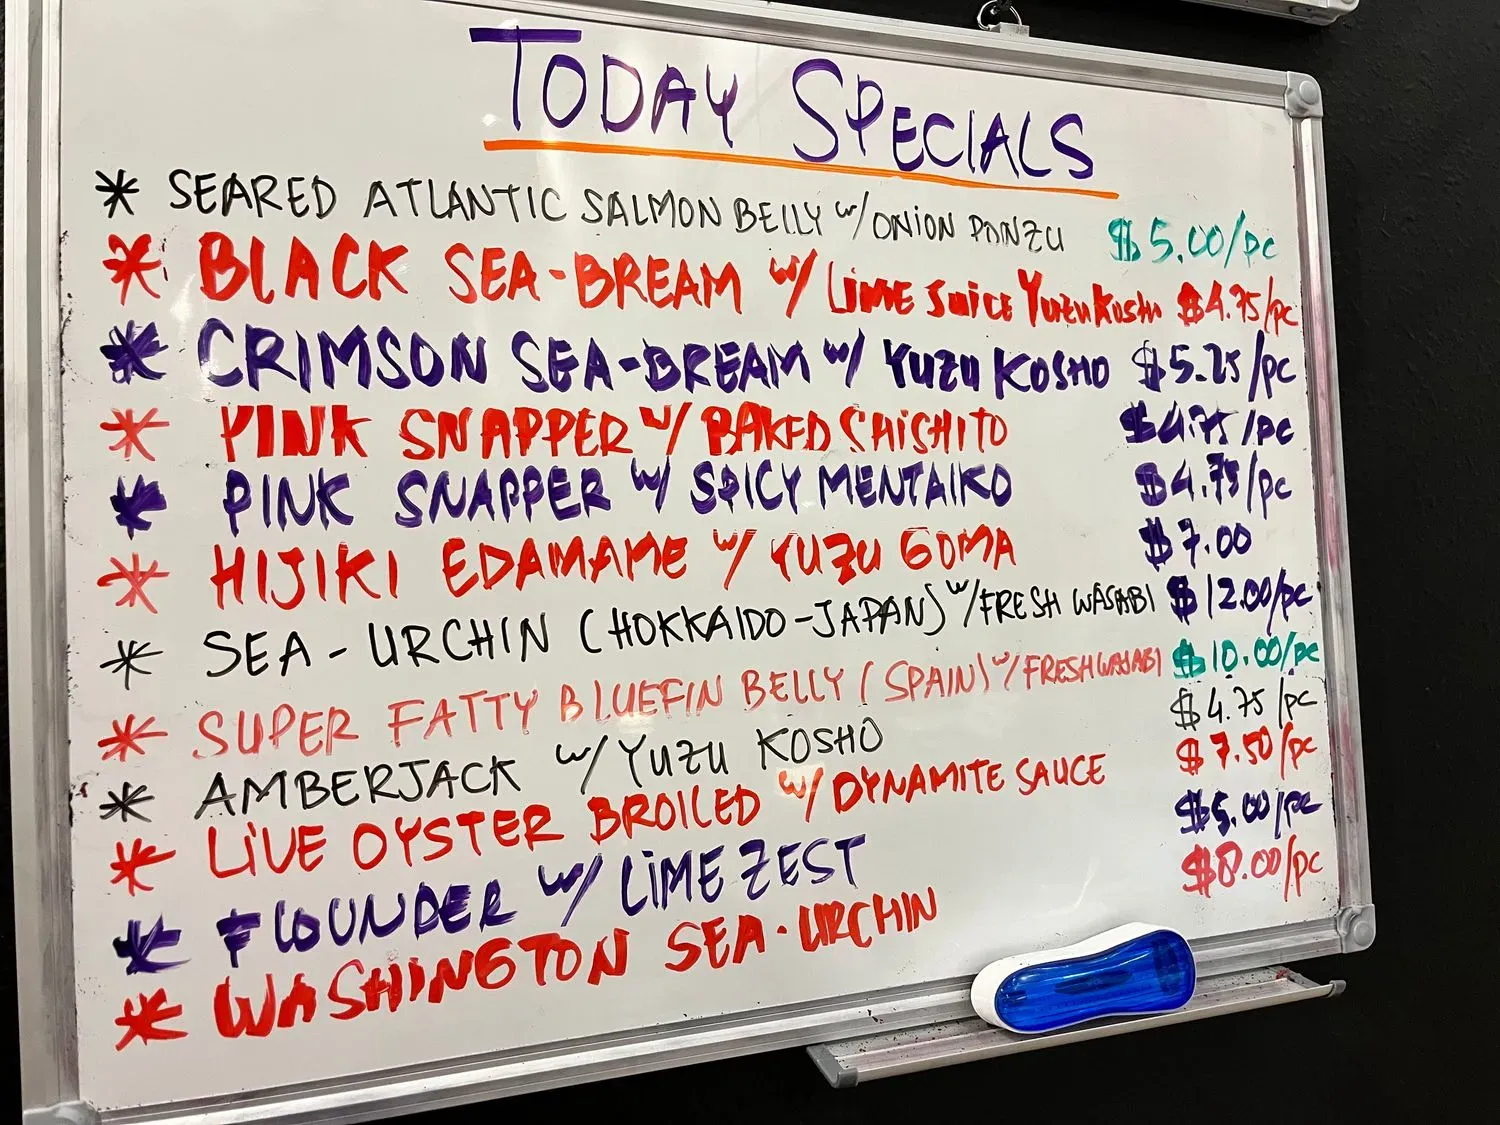 TODAY SPECIALS
* SEARED ATLANTIC SALMON BELLY w/ ONION PONZU $5.00/pc
* BLACK SEA-BREAM w/ LiME JuiCE YuzuKosho $4.75/pc
* CRIMSON SEA-BREAM w/ YUZU KOSHO $5.25/pc
* PINK SNAPPER w/ BAKED SHiSHITO $4.75/pc
* PINK SNAPPER w/ SPICY MENTAIKO $4.75/pc
* HIJIKI EDAMAME w/ YUZU GOMA $7.00
* SEA-URCHIN (HOKKAIDO-JAPAN) w/ FRESH WASABI $12.00/pc
* SUPER FATTY BLUEFIN BELLY (SPAIN) w/ FRESH WASABI $10.00/pc
* AMBERJACK w/ YUZU KOSHO $4.75/pc
* LiVE OYSTER BROILED w/ DYNAMITE SAUCE $7.50/pc
* FLOUNDER w/ LiME ZEST $5.00/pc
* WASHINGTON SEA-URCHIN $8.00/pc